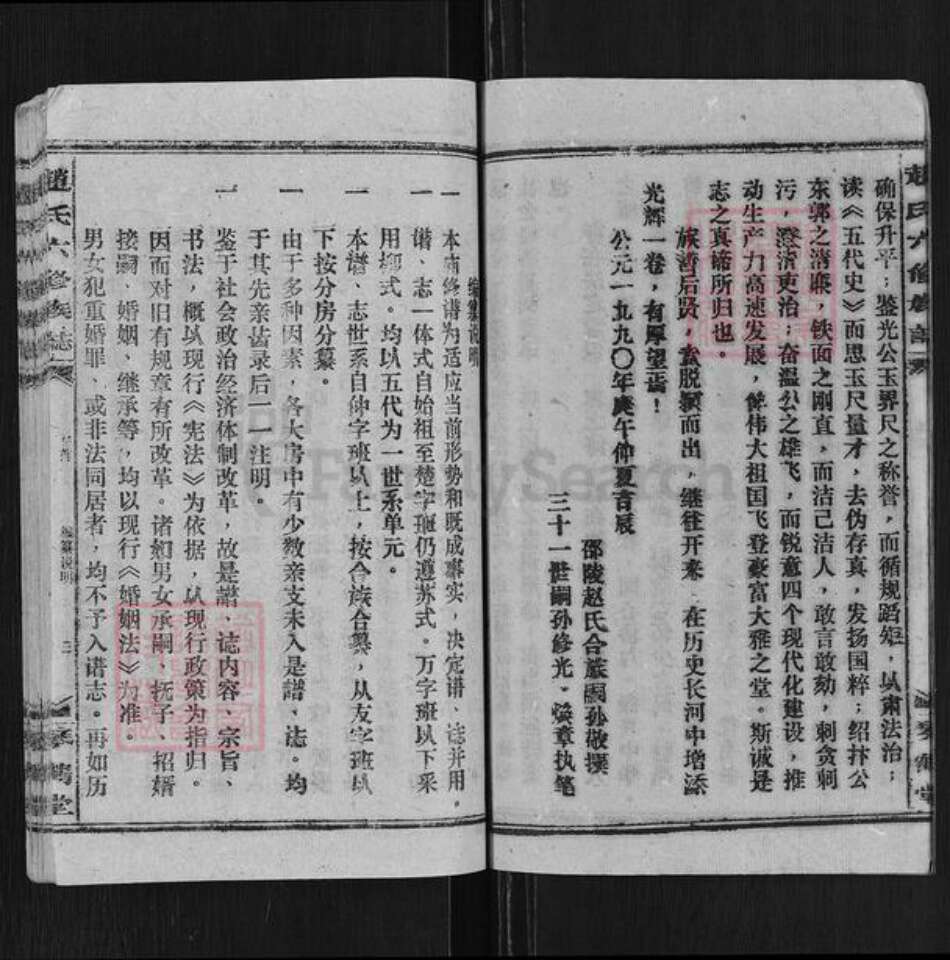 确保升平；鉴光公玉界尺之称誉，而循规蹈矩，以肃法治；
读《五代史》而思玉尺量才，去伪存真，发扬国粹；绍抃公
东郭之清廉，铁面之刚直，而洁己洁人，敢言敢劾，刺贪刺
污，澄清吏治；奋温公之雄飞，而锐意四个现代化建设，推
动生产力高速发展，俾伟大祖国飞登豪富大雅之堂。斯诚是
志之真谛所归也。
族善后贤，意脱颖而出，继往开来，在历史长河中增添
光辉一卷，有厚望焉！
公元一九九〇年庚午仲夏吉辰
邵陵赵氏合族嗣孙敬撰
三十一世嗣孙修光、焕章执笔
编纂说明
一 本届修谱为适应当前形势和既成事实，决定谱、志并用。
一 谱、志一体式自始祖至楚字班仍遵苏式。万字班以下采
用 式。均以五代为一世系单元。
一 本谱、志世系自仲字班以上，按合族合纂，从友字班以
下按分房分纂。
一 由于多种因素，各大房中有少数亲支未入是谱、志。均
于其先亲齿录后一一注明。
一 鉴于社会政治经济体制改革，故是谱、志内容、宗旨、
书法，概以现行《宪法》为依据，以现行政策为指归。
因而对旧有规章有所改革。诸如男女承嗣、抚子、招婿
接嗣、婚姻、继承等，均以现行《婚姻法》为准。
男女犯重婚罪、或非法同居者，均不予入谱志。再如历
趙氏六修族誌
编纂说明
三
琴鹤堂
FamilySearch